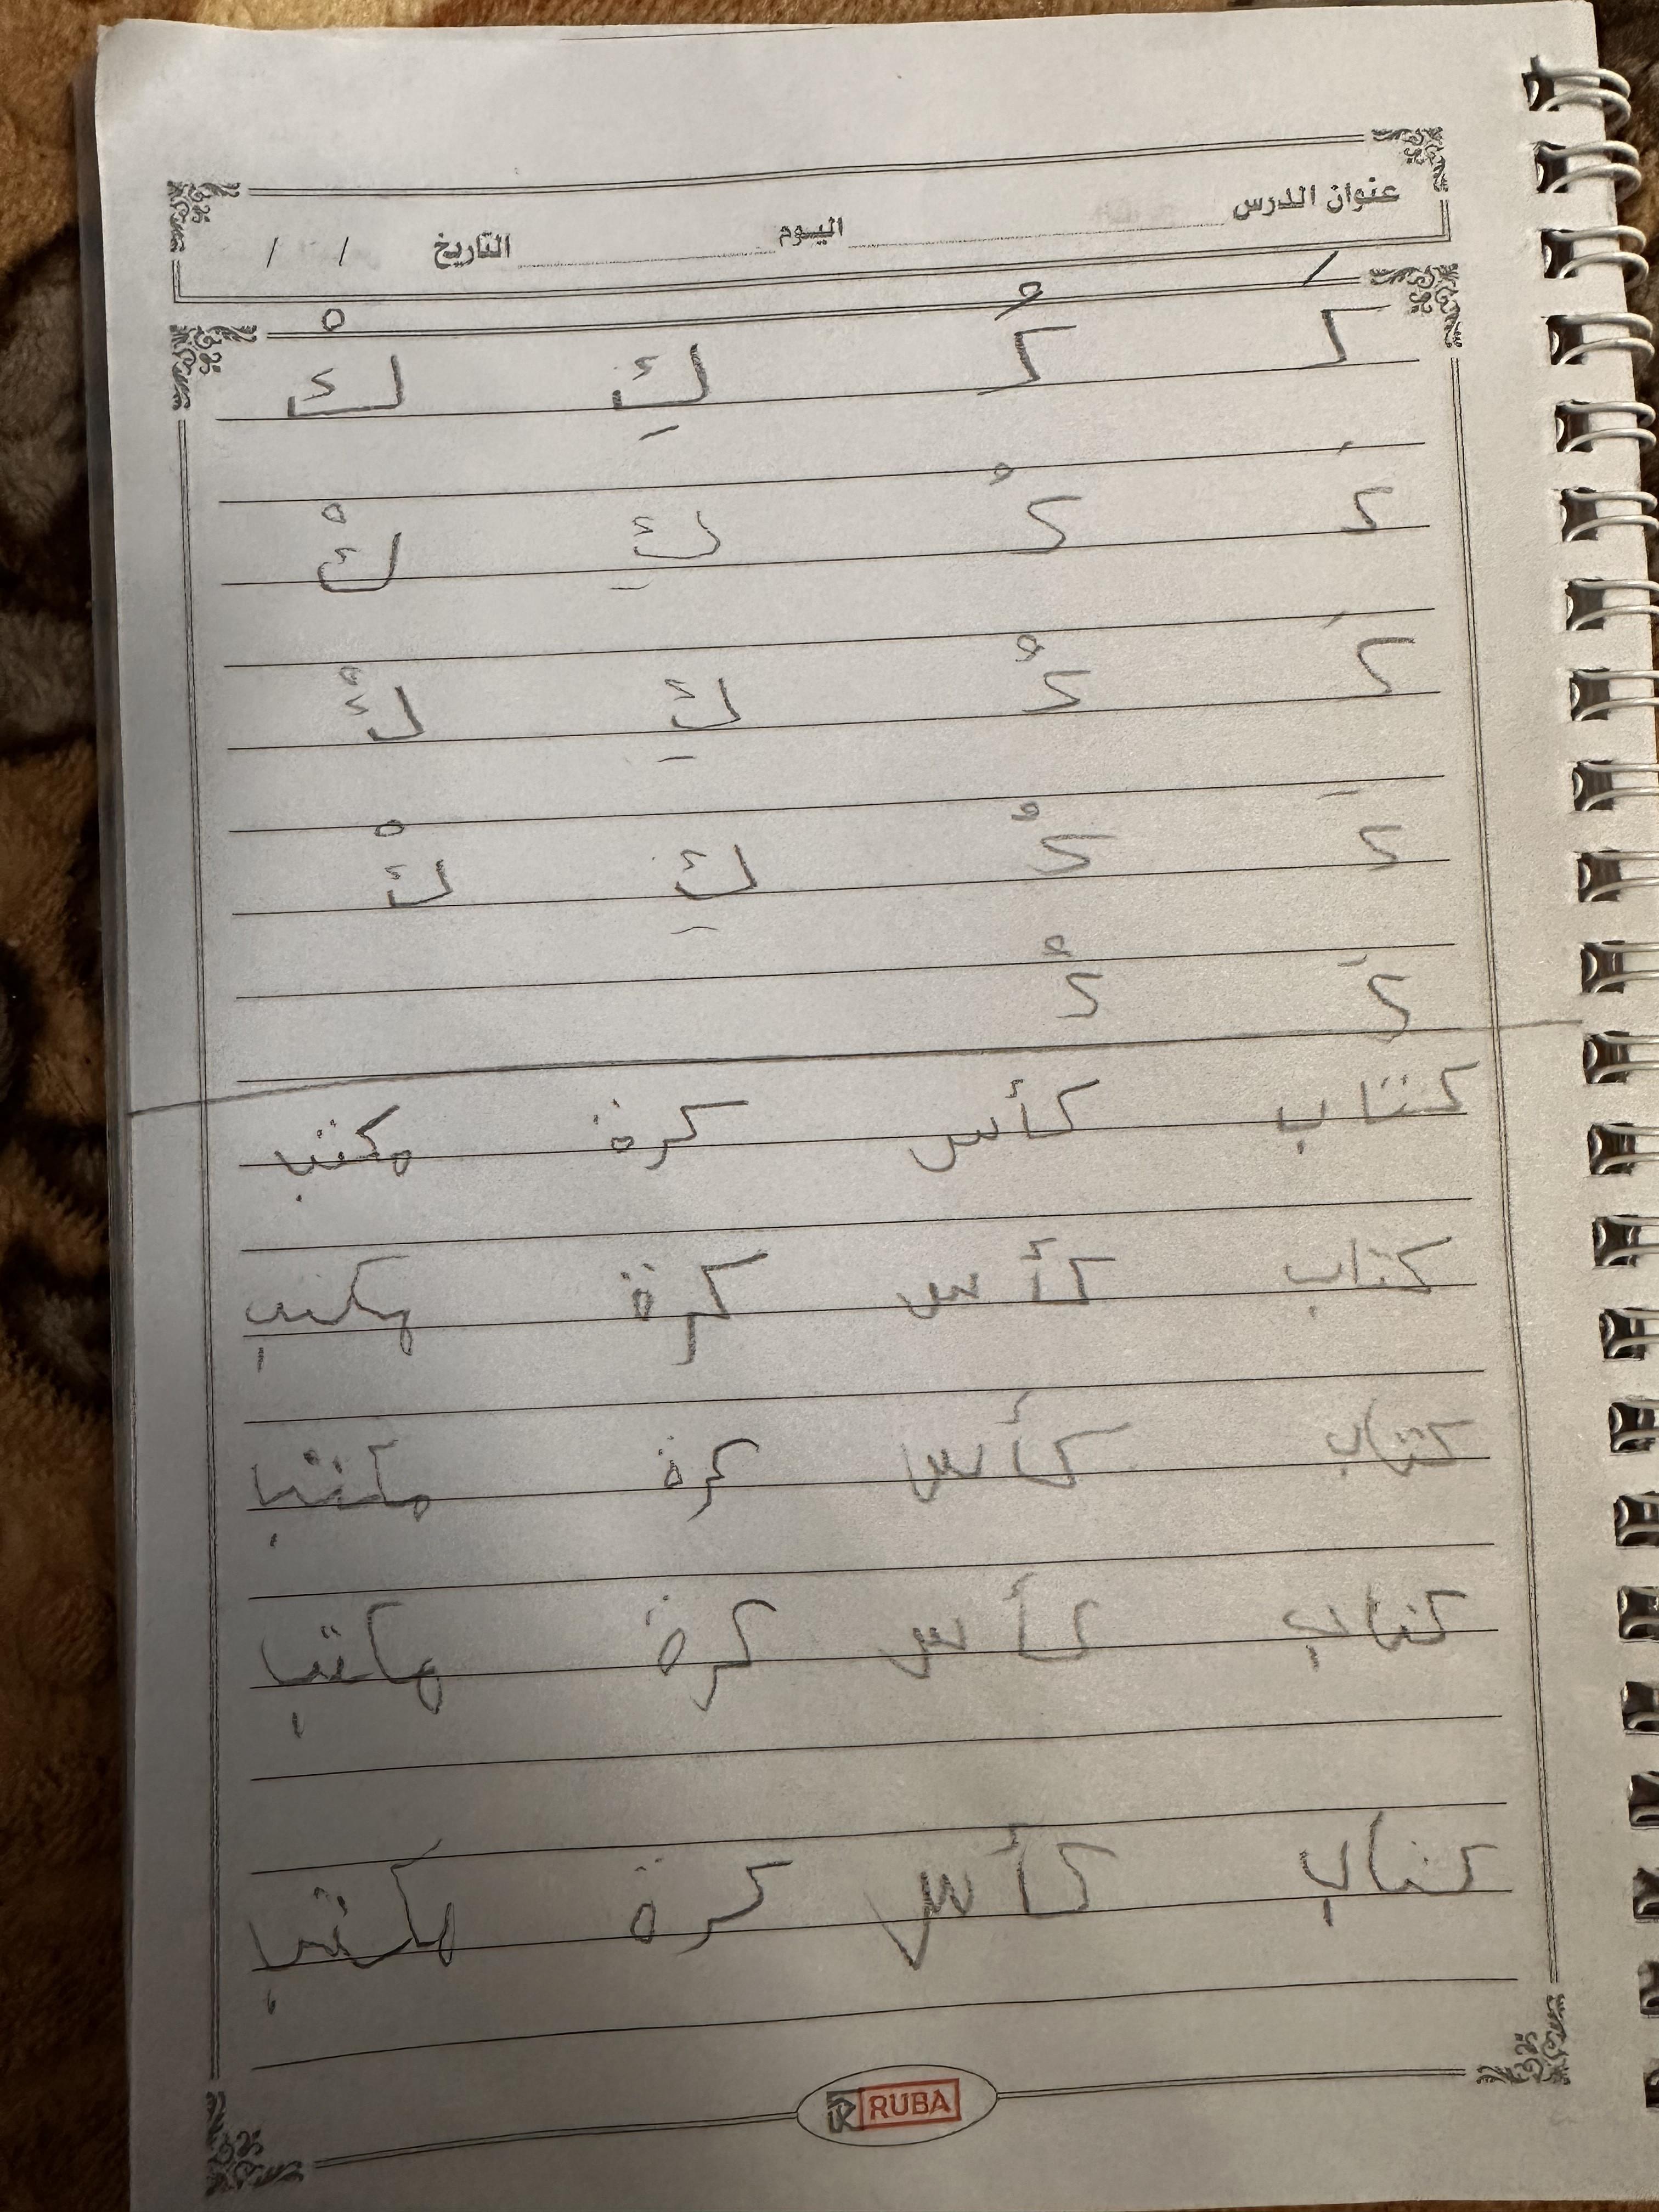 عنوان الدرس اليوم التاريخ / /
كَ كُ كِ كْ
كَ كُ كِ كْ
كَ كُ كِ كْ
كَ كُ كِ كْ
كَ كُ
كتاب كأس كرة مكتب
كتاب كأس كرة مكتب
كتاب كأس كرة مكتب
كتاب كأس كرة مكتب
كتاب كأس كرة مكتب
R RUBA